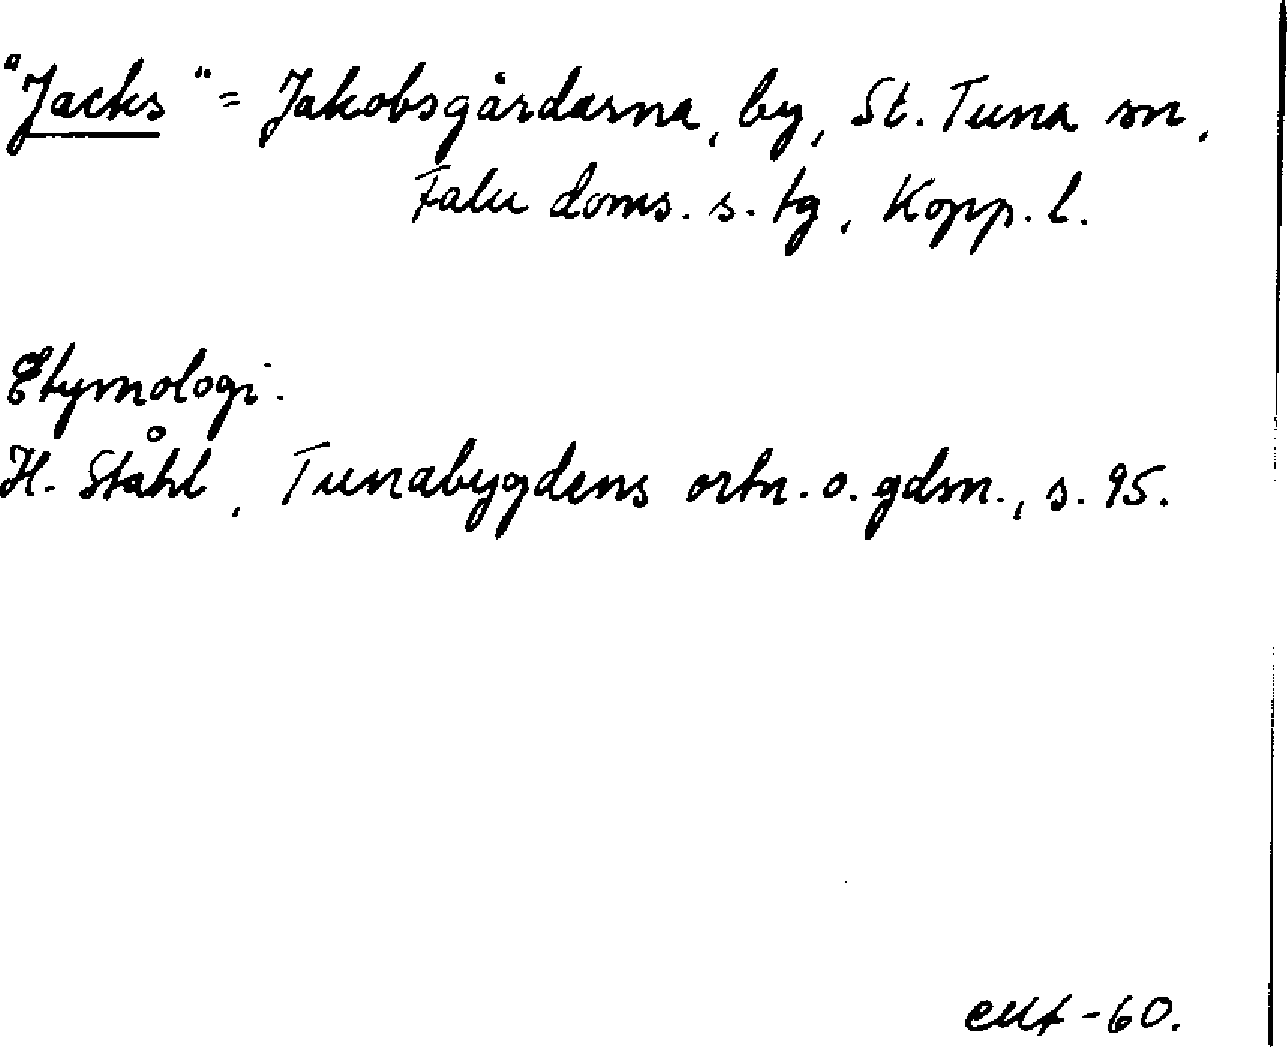 "Jacks" = Jakobsgårdarna, by, St. Tuna sn,
Falu doms. s. tg, Kopp. l.
Etymologi.
H. Ståhl, Tunabygdens ortn. o. gdsn., s. 95.
-60.